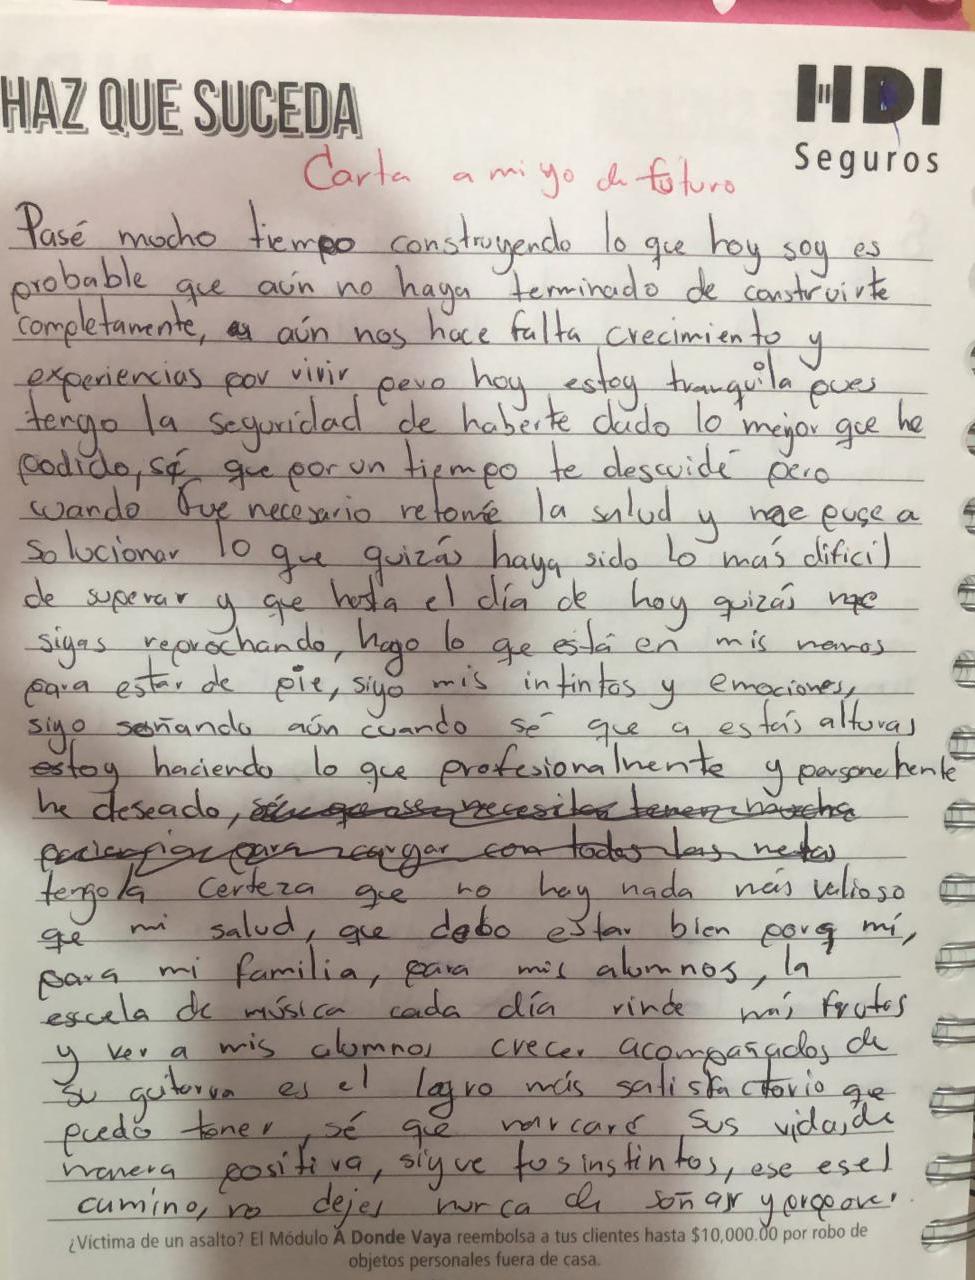 HAZ QUE SUCEDA
HDI
Seguros
Carta a mi yo de futuro
Pasé mucho tiempo construyendo lo que hoy soy es
probable que aún no haya terminado de construirte
completamente, aún nos hace falta crecimiento y
experiencias por vivir pero hoy estoy tranquila pues
tengo la seguridad de haberte dado lo mejor que he
podido, sé que por un tiempo te descuidé pero
cuando fue necesario retomé la salud y me puse a
solucionar lo que quizás haya sido lo más difícil
de superar y que hasta el día de hoy quizás me
sigas reprochando, hago lo qe está en mis manos
para estar de pie, sigo mis intintos y emociones,
sigo soñando aún cuando sé que a estás alturas
estoy haciendo lo que profesionalmente y personalmente
he deseado, sé que se necesita tener mucha
paciencia para cargar con todas las metas
tengo la certeza que no hay nada más valioso
qe mi salud, que debo estar bien para mí,
para mi familia, para mis alumnos, la
escuela de música cada día rinde más frutos
y ver a mis alumnos crecer acompañados de
su guitarra es el logro más satisfactorio que
puedo tener, sé que marcaré sus vidas de
manera positiva, sigue tus instintos, ese es el
camino, no dejes nunca de soñar y proponer.
¿Víctima de un asalto? El Módulo A Donde Vaya reembolsa a tus clientes hasta $10,000.00 por robo de
objetos personales fuera de casa.